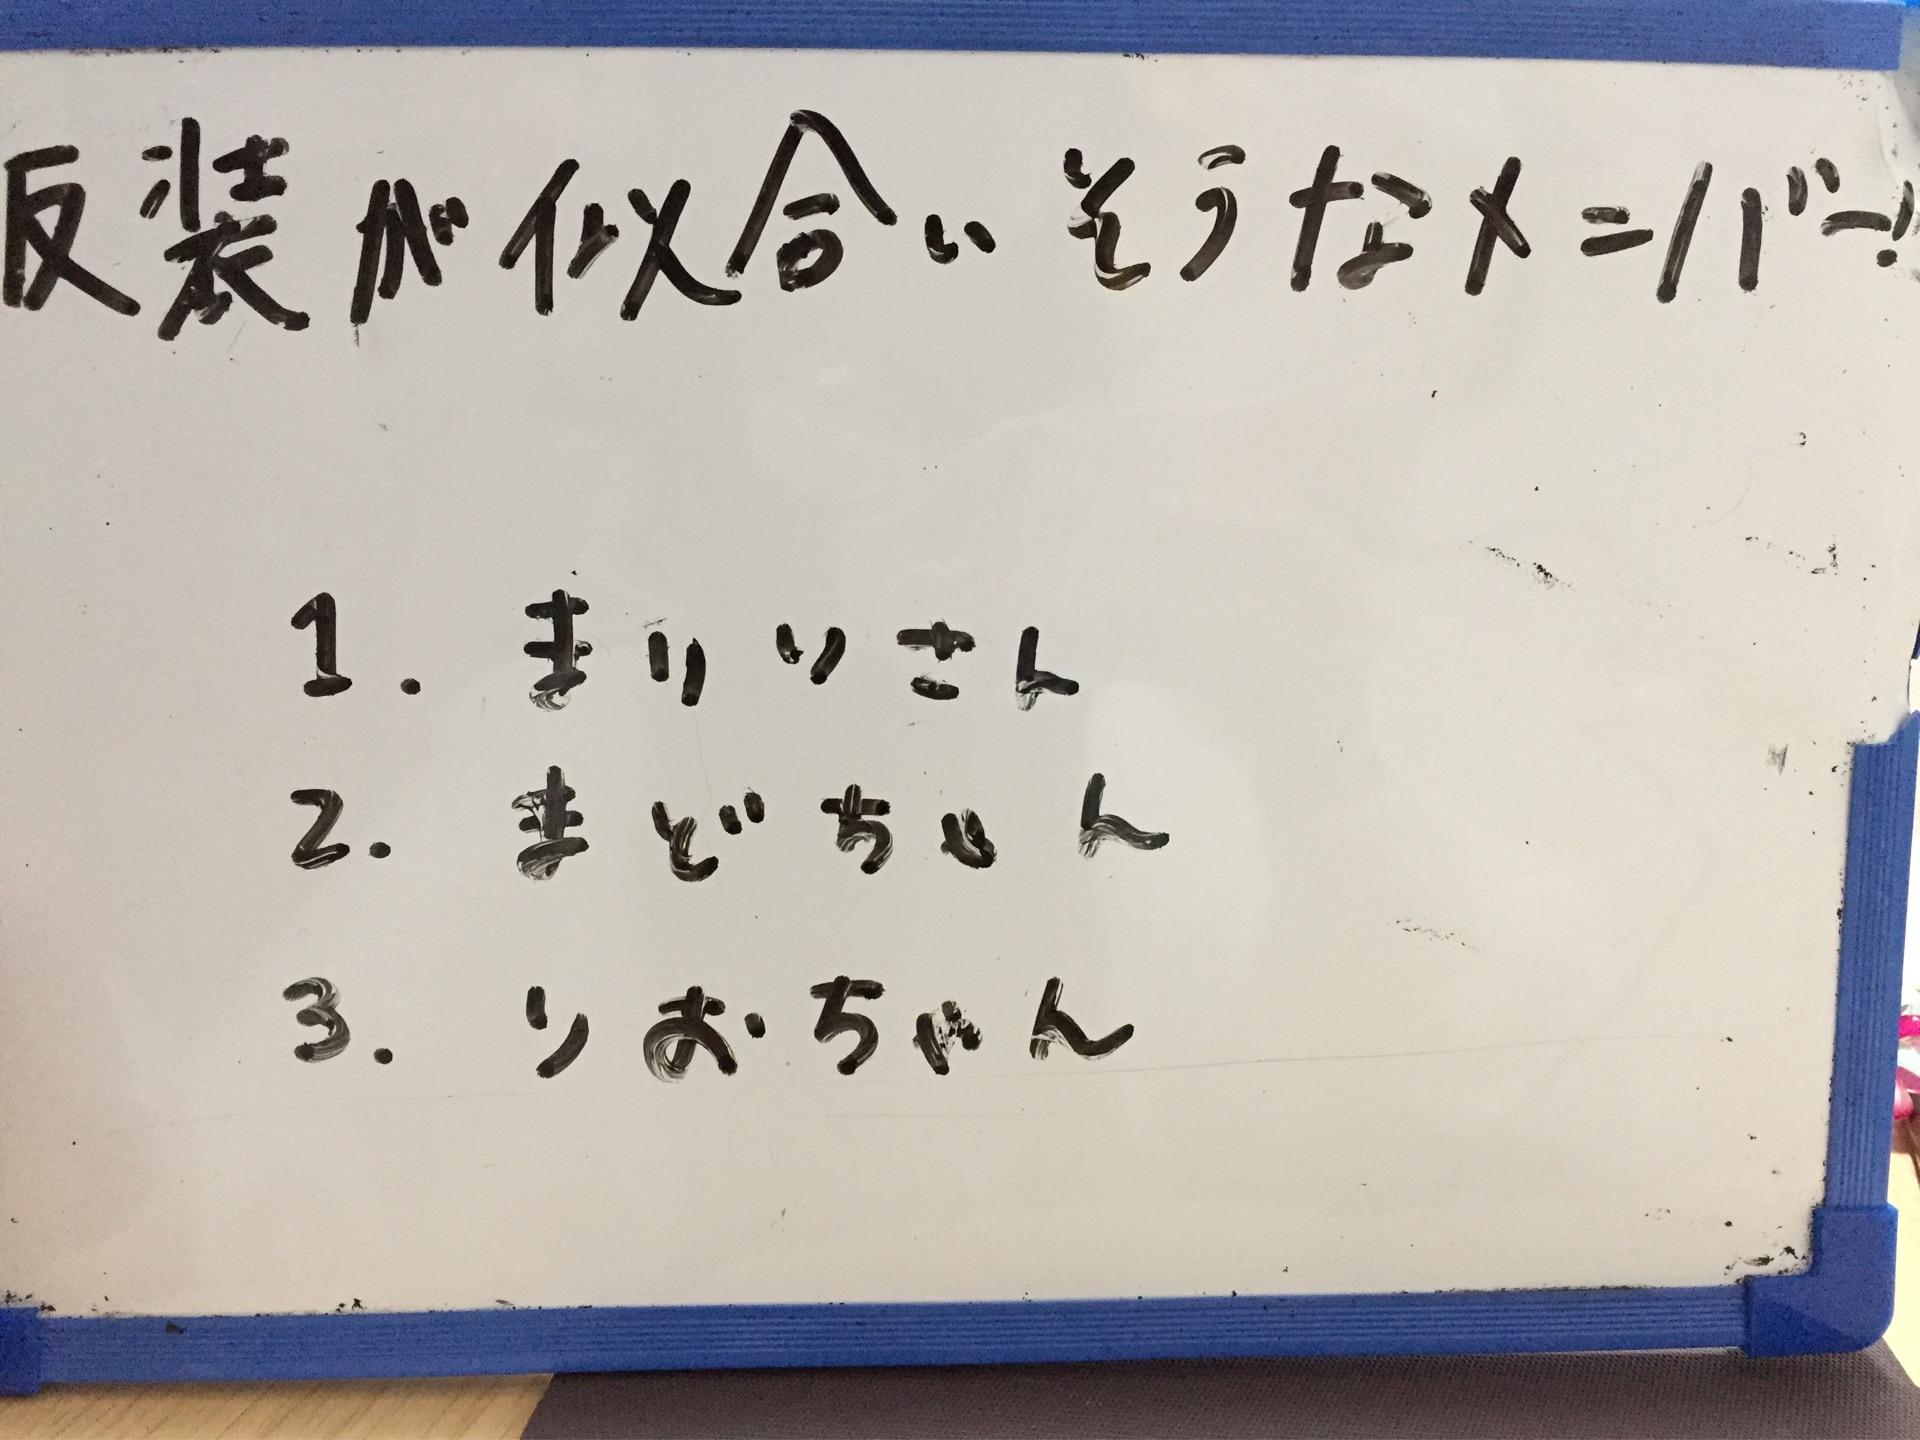 反装が似合いそうなメンバー!
1. まりりさん
2. まどちゃん
3. りおちゃん